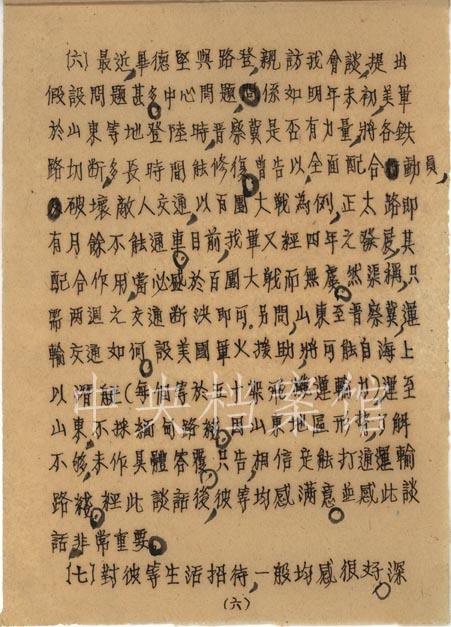 (六)最近,畢德堅與路登,親訪我會談,提出
假設問題甚多,中心問題,關係如明年末初,美軍
於山東等地登陸時晋察冀是否有力量,將各鉄
路切断,多長時間能修復,曽告以全面配合動員,
破壞敵人交通,以百團大戦為例,正太路即
有月餘不能通車,目前,我軍又經四年之發展,其
配合作用,當必盛於百團大戦而無慮,然渠稱,只
需两週之交通断决即可,另問,山東至晋察冀,運
輸交通如何,設美國軍火援助,將可能自海上
以潜艇(每個等於五十架飛機運輸力)運至
山東,不採緬甸路綫,因山東地區形情,了解
不够,未作具體答覆,只告,相信定能打通運輸
路綫,經此談話後,彼等均感满意並感此談
話,非常重要
(七)對彼等生活招待,一般均感很好,深
(六)
中央档案馆